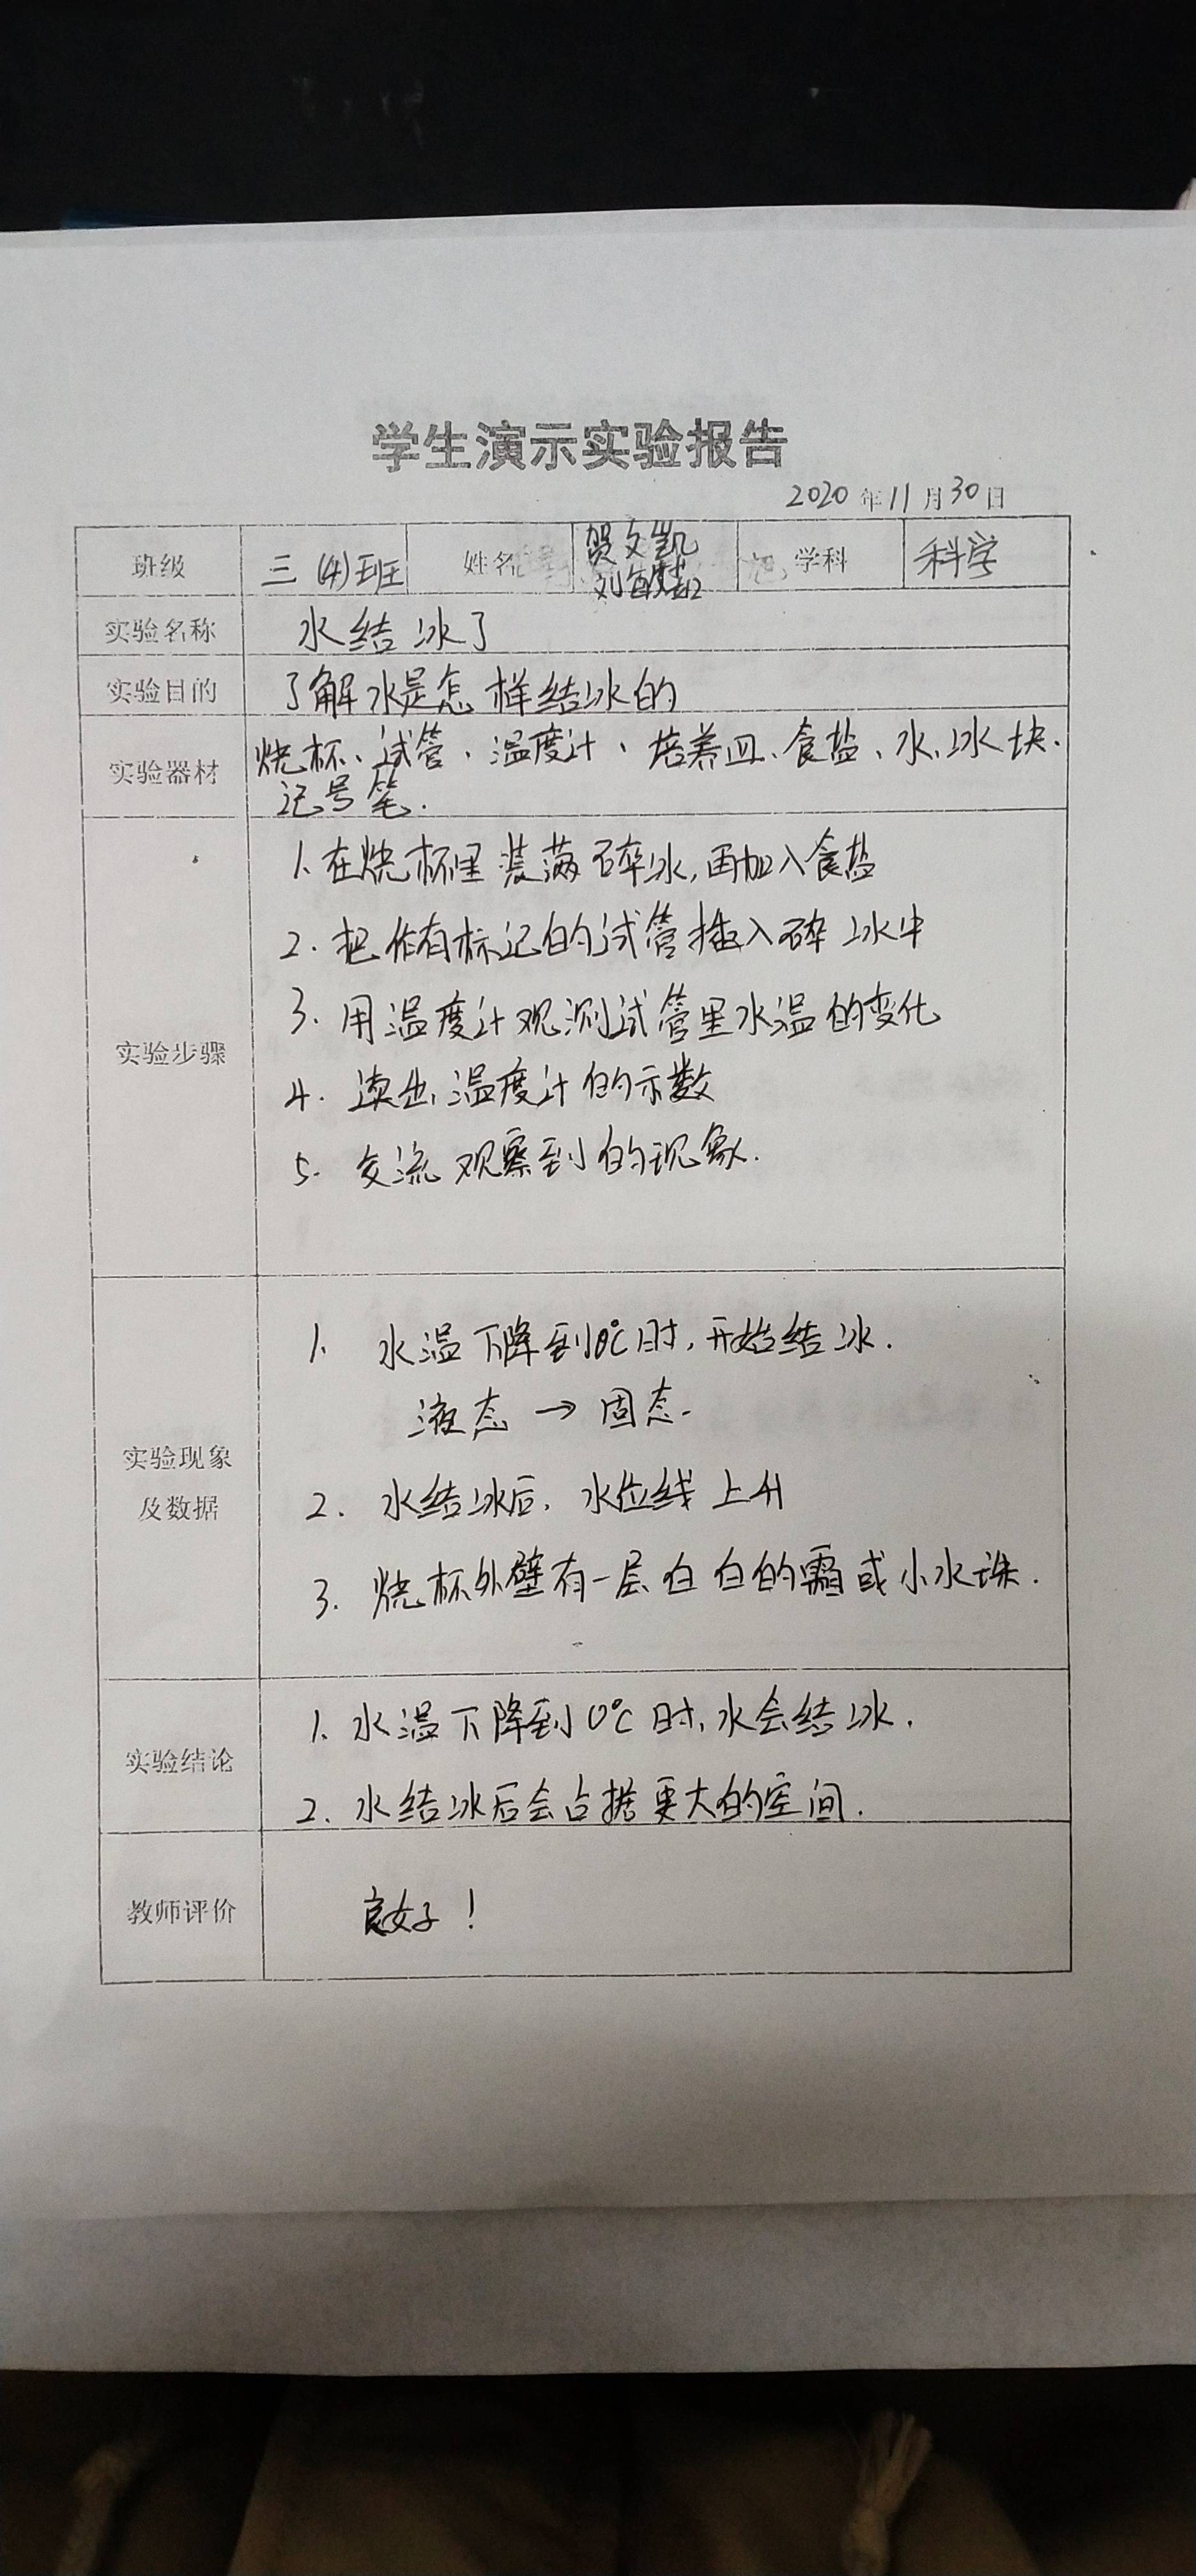 学生演示实验报告
2020年11月30日
班级 三(4)班 姓名 贺文凯 学科 科学
刘
实验名称 水结冰了
实验目的 了解水是怎样结冰的
实验器材 烧杯、试管、温度计、培养皿、食盐、水、冰块、
记号笔.
实验步骤
1. 在烧杯里装满碎冰,再加入食盐
2. 把作有标记的试管插入碎冰中
3. 用温度计观测试管里水温的变化
4. 读出温度计的示数
5. 交流观察到的现象.
实验现象
及数据
1. 水温下降到0℃时,开始结冰.
液态→固态.
2. 水结冰后,水位线上升
3. 烧杯外壁有一层白白的霜或小水珠.
实验结论
1. 水温下降到0℃时,水会结冰.
2. 水结冰后会占据更大的空间.
教师评价 良好!